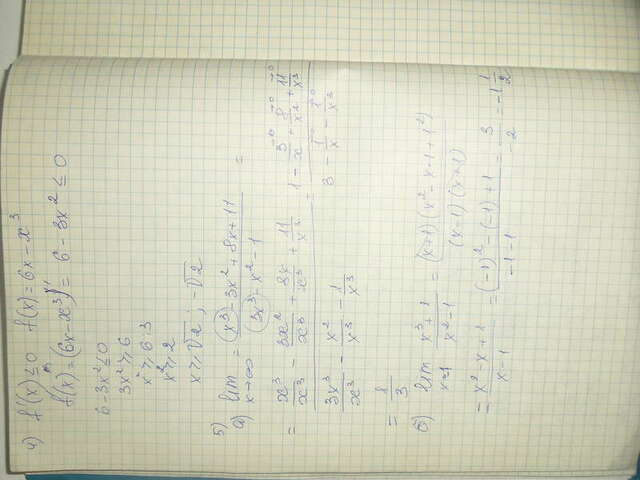 4) f'(x) ≤ 0 f(x) = 6x - x³
f'(x) = (6x - x³)' = 6 - 3x² ≤ 0
6 - 3x² ≤ 0
3x² ≥ 6
x² ≥ 6:3
x² ≥ 2
x ≥ √2 ; -√2
5)
а) lim x→∞ = (x³ - 3x² + 8x + 11)/(3x³ - x² - 1) =
= (x³/x³ - 3x²/x³ + 8x/x³ + 11/x³)/(3x³/x³ - x²/x³ - 1/x³) = (1 - 3/x→0 + 8/x²→0 + 11/x³→0)/(3 - 1/x→0 - 1/x³→0)
= 1/3
б) lim (x³+1)/(x²-1) = (x+1)(x² - x·1 + 1²)/(x-1)(x+1)
= (x² - x + 1)/(x-1) = ((-1)² - (-1) + 1)/(-1-1) = 3/-2 = -1 1/2